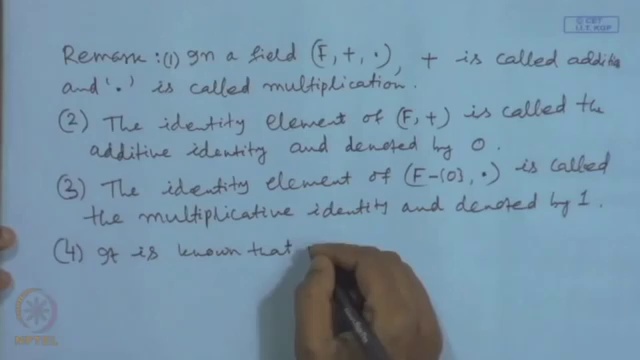 © CET
I.I.T. KGP
Remark: (1) In a field (F, +, ·), + is called additio
and '·' is called multiplication.
(2) The identity element of (F, +) is called the
additive identity and denoted by 0.
(3) The identity element of (F-{0}, ·) is called
the multiplicative identity and denoted by 1.
(4) It is known that
NPTEL